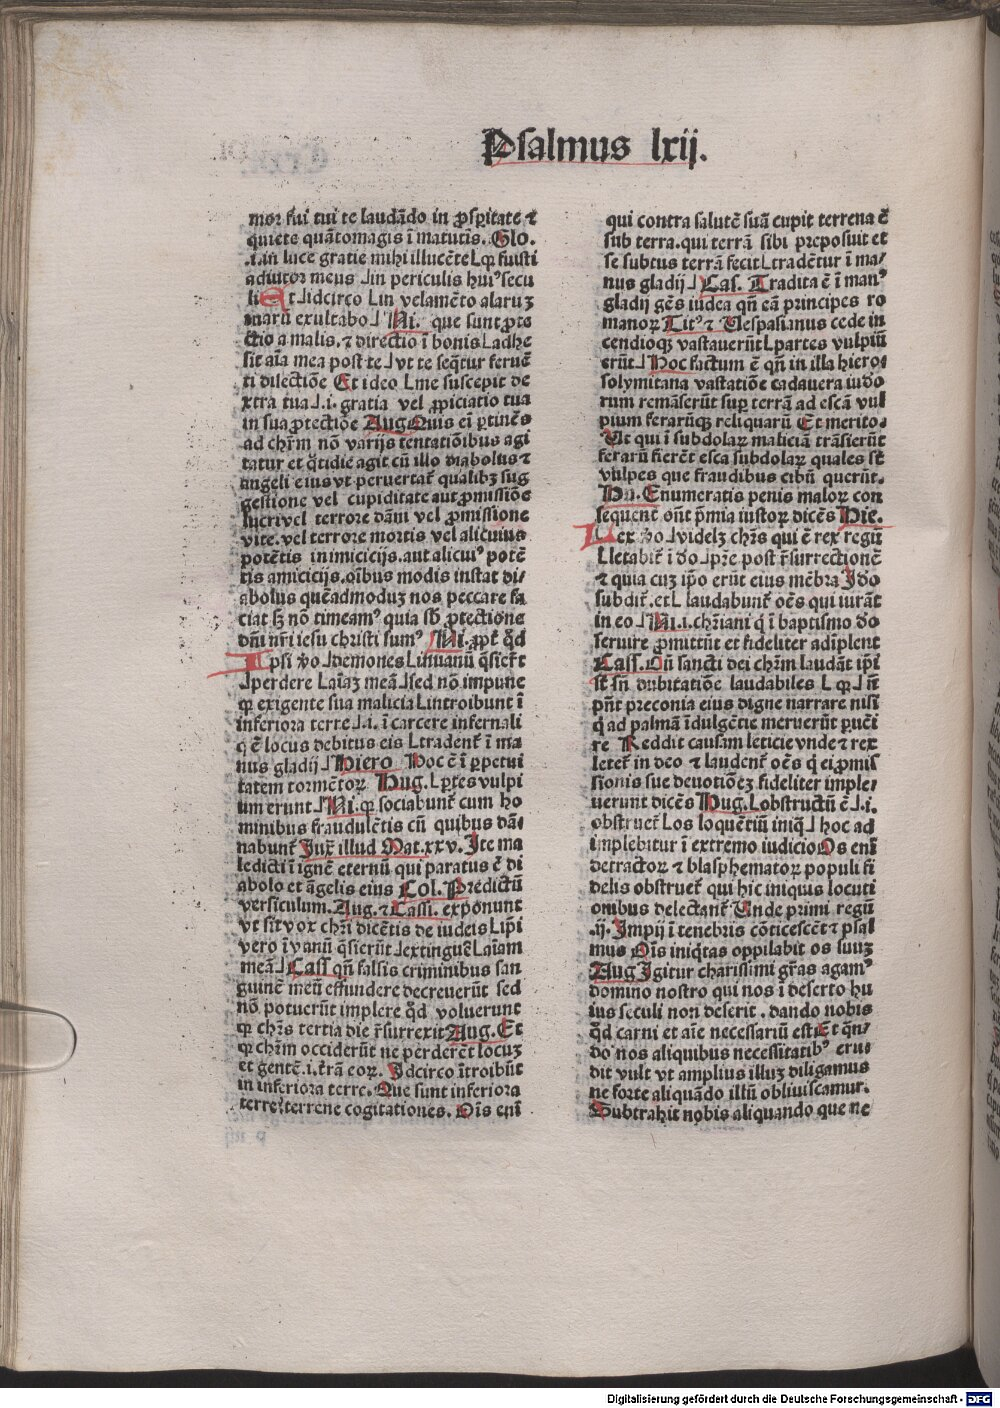 Psalmus lxij.
mor fui tui te laudādo in ꝓsꝑitate ⁊
quiete quātomagis ī matutīs. Glo.
.i. in luce gratie mihi illucēte ⌊qꝫ fuisti
adiutor meus ⌋in periculis huiꝰ secu
li Et ⌋idcirco ⌊in velamēto alaruꝫ
tuarū exultabo⌋ Ni. que sunt ꝓte
ctio a malis. ⁊ directio ī bonis ⌊adhe
sit aīa mea post te ⌋vt te seq̄tur feruē
ti dilectiōe Et ideo ⌊me suscepit de
xtra tua⌋.i. gratia vel ꝓpiciatio tua
in sua ꝓtectiōe Aug. Quis eī ꝑtinēs
ad chr̄m nō varijs tentatiōibus agi
tatur et q̄tidie agit cū illo diabolus ⁊
angeli eius vt peruertat̄ qualibꝫ sug
gestione vel cupiditate aut ꝓmissiōe
lucri vel terrore dāni vel ꝓmissione
vite. vel terrore mortis vel alicuius
potētis inimicicijs. aut alicuiꝰ potē
tis amicicijs. oībus modis instat di/
abolus quēadmoduꝫ nos peccare fa
ciat sꝫ nō timeamꝰ quia sb̄ ꝓtectione
dn̄i nr̄i iesu christi sumꝰ Ni. ꝓpt̄ qd̄
Ipsi ꝟo ⌋demones ⌊inuanū q̄sier̄t
⌋perdere ⌊aīaꝫ meā ⌋sed nō impune
qꝫ exigente sua malicia ⌊introibunt ī
inferiora terre ⌋.i. ī carcere infernali
q ē locus debitus eis ⌊tradent̄ ī ma
nus gladij⌋ Hiero Hoc ē ī ꝑpetui
tatem tormētoꝝ Hug. ⌊ꝑtes vulpi
um erunt ⌋Ni. qꝫ sociabunt̄ cum ho
minibus fraudulētis cū quibus dā⸗
nabunt̄ Iux̄ illud Mat. xxv. Ite ma
ledicti ī ignē eternū qui paratus ē di
abolo et āgelis eius Col. Predictū
versiculum. Aug. ⁊ Cassi. exponunt
vt sit vox chr̄i dicētis de iudeis ⌊ip̄i
vero ī vanū q̄sierūt ⌋extinguē ⌊aīam
meā ⌋Cass qn̄ falsis criminibus san
guinē meū effundere decreuerūt sed
nō potuerūt implere qd̄ voluerunt
qꝫ chr̄s tertia die r̄surrexit Aug. Et
qꝫ chr̄m occiderūt ne perderēt locuꝫ
et gentē .i. tr̄ā eoꝝ. Idcirco ītroibūt
in inferiora terre. Que sunt inferiora
terre? terrene cogitationes. Oīs enī
qui contra salutē suā cupit terrena ē
sub terra. qui terrā sibi preposuit et
se subtus terrā fecit ⌊tradētur ī ma/
nus gladij ⌋Cas. Tradita ē ī manꝰ
gladij gēs iudea qn̄ eā principes ro
manoꝝ Titꝰ ⁊ Vespasianus cede in
cendioqꝫ vastauerūt ⌊partes vulpiū
erūt ⌋Hoc factum ē qn̄ in illa hiero⸗
solymitana vastatiōe cadauera iudo
rum remāserūt suꝑ terrā ad escā vul
pium ferarūqꝫ reliquarū Et merito.
Vt qui ī subdolaꝝ maliciā trāsierūt
ferarū fierēt esca subdolaꝝ quales st̄
vulpes que fraudibus cibū querūt.
Hu. Enumeratis penis maloꝝ con
sequent̄ on̄t p̄mia iustoꝝ dicēs Hie.
Rex ꝟo ⌋videlꝫ chr̄s qui ē rex regū
⌊letabit̄ ī do ⌋pr̄e post r̄surrectionē
⁊ quia cuꝫ ip̄o erūt eius mēbra Ido
subdit̄. et ⌊ laudabunt̄ oēs qui iurāt
in eo ⌋Ni. i. chr̄iani q̇ ī baptismo do
seruire ꝓmittūt et fideliter adīplent
Cass. Oū sancti dei chr̄m laudāt ip̄i
st̄ sn̄ dubitatiōe laudabiles ⌊ qꝫ ⌋ n̄
pn̄t preconia eius digne narrare nisi
q̇ ad palmā īdulgētie meruerūt ꝑuēi
re Reddit causam leticie vnde ⁊ rex
letet̄ in deo ⁊ laudent̄ oēs q̇ ei ꝓmis
sionis sue deuotiōeꝫ fideliter imple/
uerunt dicēs Hug. ⌊obstructū ē ⌋.i.
obstruet̄ ⌊os loquētiū iniq̄ ⌋ hoc ad
implebitur ī extremo iudicio Os enī
detractoꝝ ⁊ blasphematoꝝ populi fi
delis obstruet̄ qui hic iniquis locuti
onibus delectant̄ Vnde primi regū
.ij. Impij ī tenebris cōticescēt ⁊ psal
mus Oīs iniq̄tas oppilabit os suuꝫ
Aug Igitur charissimi gr̄as agamꝰ
domino nostro qui nos ī deserto hu
ius seculi non deserit . dando nobis
qd̄ carni et aīe necessariū est Et qn̄/
do nos aliquibus necessitatibꝰ eru⸗
dit vult vt amplius illuꝫ diligamus
ne forte aliquādo illū obliuiscamur.
Subtrahit nobis aliquando que ne
Digitalisierung gefördert durch die Deutsche Forschungsgemeinschaft - DFG